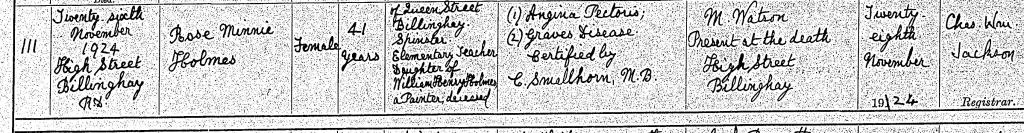 111
Twenty sixth
November
1924
High Street
Billinghay
R.D.
Rose Minnie
Holmes
Female
41
years
of Queen Street
Billinghay.
Spinster
Elementary Teacher
Daughter of
William Henry Holmes,
a Painter, deceased
(1) Angina Pectoris;
(2) Graves Disease
Certified by
C. Smallhorn, M.B.
M. Watson
Present at the death
High Street
Billinghay
Twenty
eighth
November
1924
Chas. Wm.
Jackson
Registrar.